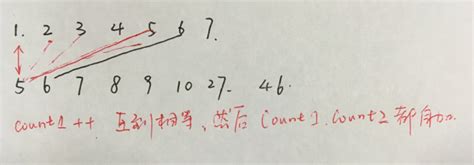 1. 2 3 4 5 6 7.
5 6 7 8 9 10 27. 46.
count1 ++ 直到相等、然后 Count1. Count2 都自加.